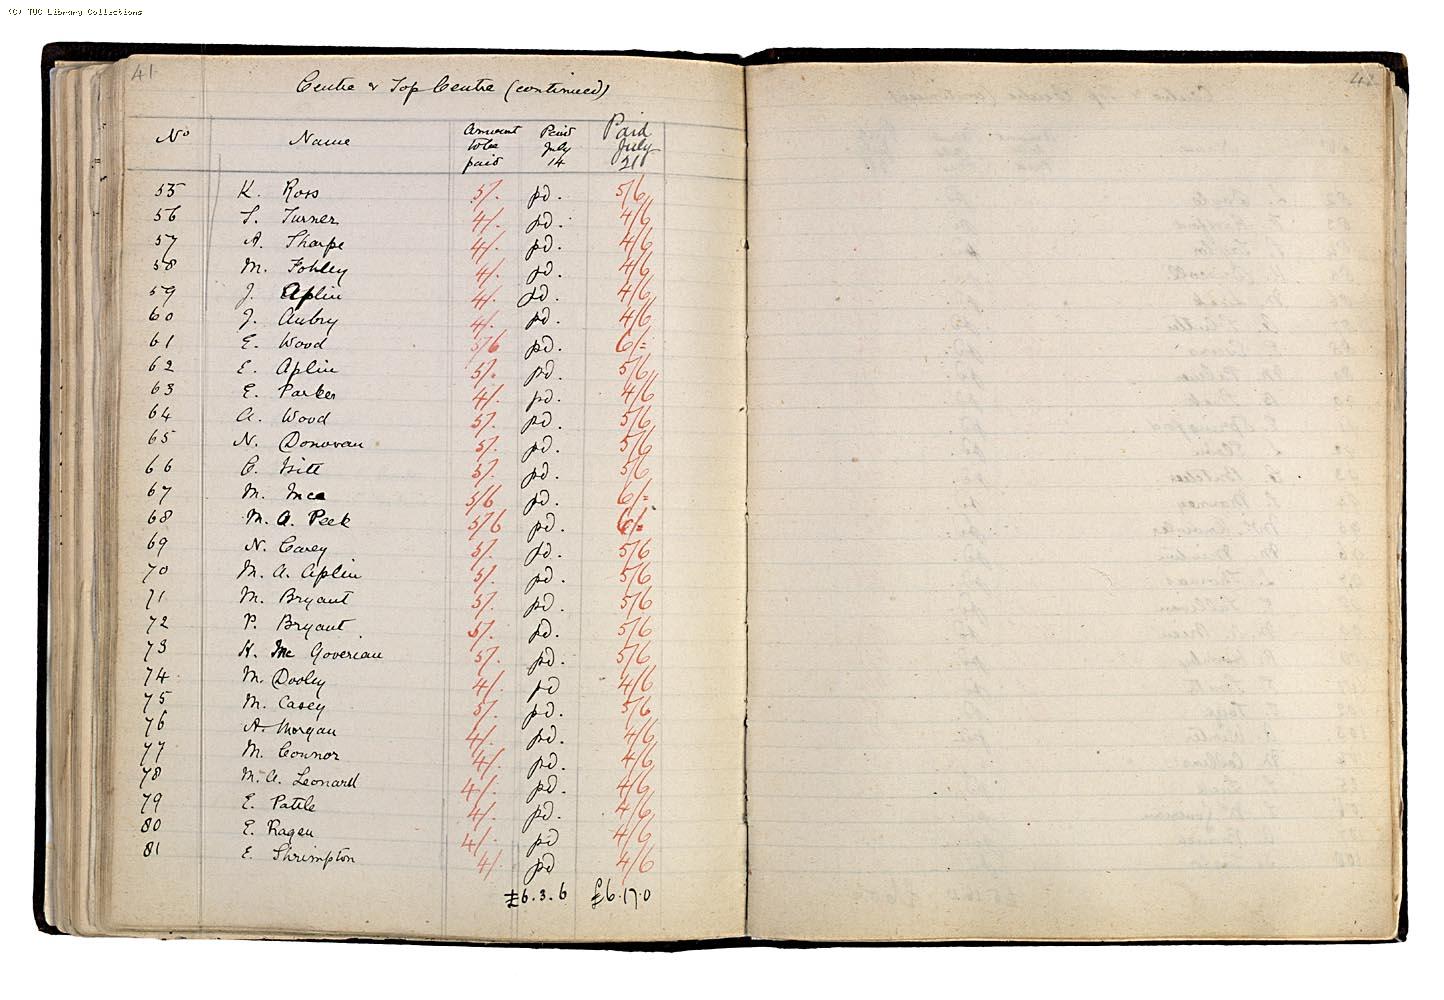 (C) TUC Library Collections
41
Centre & Top Centre (continued)
No Name Amount to be paid Paid July 14 Paid July 21
55 K. Ross 5/. pd. 5/6
56 S. Turner 4/. pd. 4/6
57 A. Sharpe 4/. pd. 4/6
58 M. Fohley 4/. pd. 4/6
59 J. Aplin 4/. pd. 4/6
60 J. Aubry 4/. pd. 4/6
61 E. Wood 5/6 pd. 6/=
62 E. Aplin 5/. pd. 5/6
63 E. Parker 4/. pd. 4/6
64 A. Wood 5/. pd. 5/6
65 N. Donovan 5/. pd. 5/6
66 5/. pd. 5/6
67 M. 5/6 pd. 6/=
68 M. A. Peek 5/6 pd. 6/=
69 N. Carey 5/. pd. 5/6
70 M. A. Aplin 5/. pd. 5/6
71 M. Bryant 5/. pd. 5/6
72 P. Bryant 5/. pd. 5/6
73 K. Mc Goverian 5/. pd. 5/6
74 M. Dooley 4/. pd 4/6
75 M. Casey 5/. pd. 5/6
76 A. Morgan 4/. pd. 4/6
77 M. Connor 4/. pd. 4/6
78 M. A. Leonard 4/. pd. 4/6
79 E. Pattle 4/. pd. 4/6
80 E. Ragen 4/. pd 4/6
81 E. Shrimpton 4/. pd 4/6
£6.3.6 £6.17.0
42